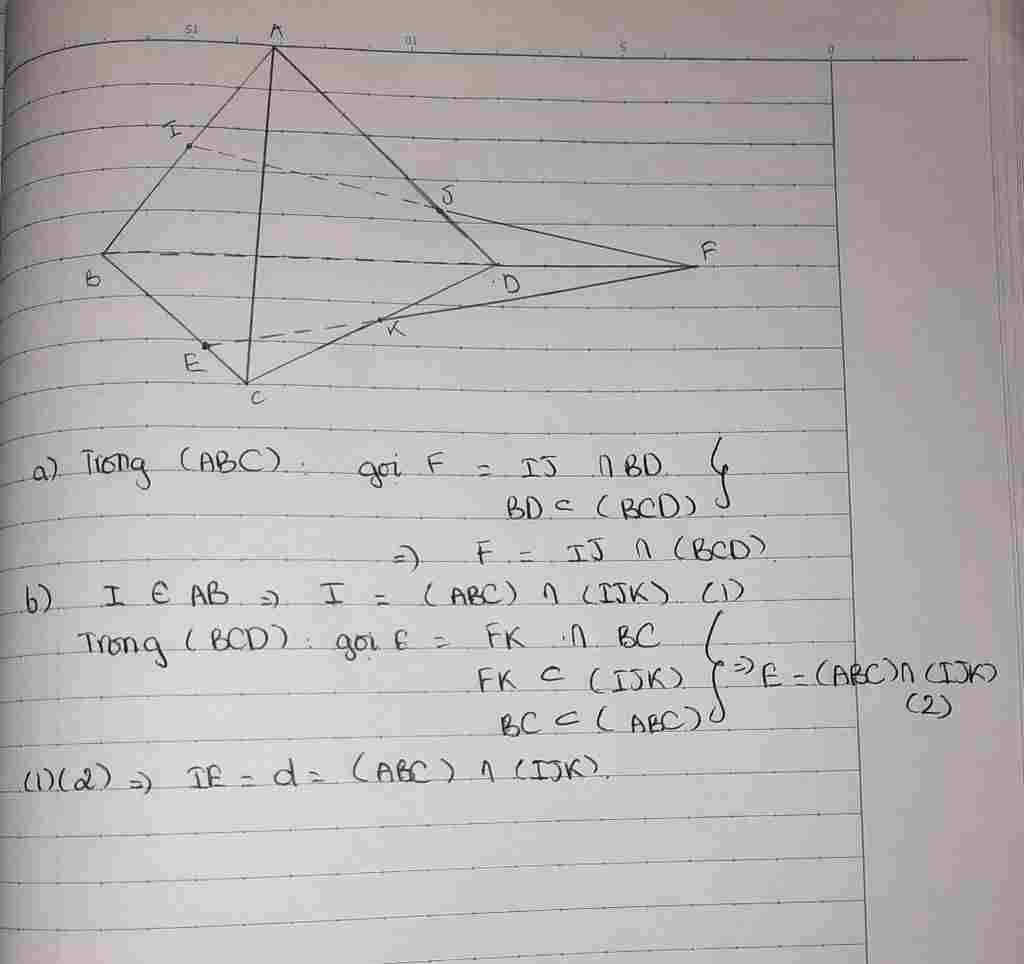 15 10 5 0
A
I
J
F
B
D
K
E
C
a) Trong (ABC): gọi F = IJ ∩ BD }
BD ⊂ (BCD)
=> F = IJ ∩ (BCD)
b) I ∈ AB => I = (ABC) ∩ (IJK) (1)
Trong (BCD): gọi E = FK ∩ BC
FK ⊂ (IJK) } => E = (ABC) ∩ (IJK)
BC ⊂ (ABC) (2)
(1)(2) => IE = d = (ABC) ∩ (IJK).